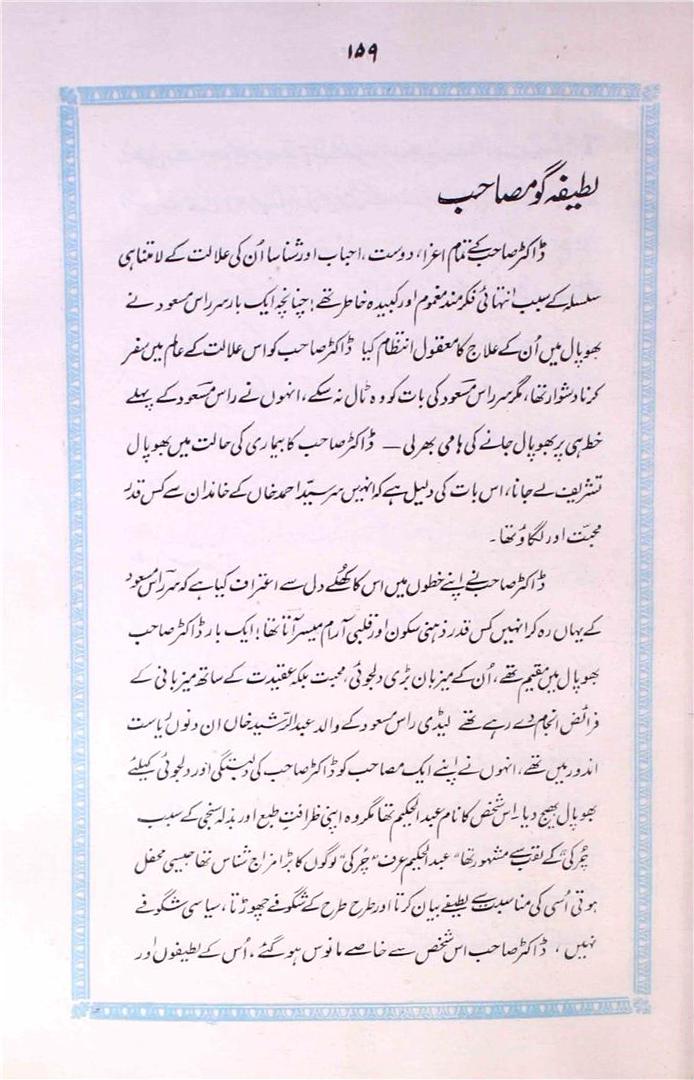 ۱۵۹
لطیفہ گو مصاحب
ڈاکٹر صاحب کے تمام اعزا، دوست، احباب اور شناسا اُن کی علالت کے لامتناہی
سلسلہ کے سبب انتہائی فکر مند مغموم اور کبیدہ خاطر تھے! چنانچہ ایک بار سر راس مسعود نے
بھوپال میں اُن کے علاج کا معقول انتظام کیا ڈاکٹر صاحب کو اس علالت کے عالم میں سفر
کرنا دشوار تھا، مگر سر راس مسعود کی بات کو وہ ٹال نہ سکے، انہوں نے راس مسعود کے پہلے
خط ہی پر بھوپال جانے کی ہامی بھر لی — ڈاکٹر صاحب کا بیماری کی حالت میں بھوپال
تشریف لے جانا، اس بات کی دلیل ہے کہ انہیں سر سیّد احمد خاں کے خاندان سے کس قدر
محبّت اور لگاؤ تھا۔
ڈاکٹر صاحب نے اپنے خطوں میں اس کا کھُلے دل سے اعتراف کیا ہے کہ سر راس مسعود
کے یہاں رہ کر انہیں کس قدر ذہنی سکون اور قلبی آرام میسر آتا تھا! ایک بار ڈاکٹر صاحب
بھوپال میں مقیم تھے، اُن کے میزبان بڑی دلجوئی، محبت بلکہ عقیدت کے ساتھ میزبانی کے
فرائض انجام دے رہے تھے لیڈی راس مسعود کے والد عبدالرّشید خاں ان دنوں ریاست
اندور میں تھے، انہوں نے اپنے ایک مصاحب کو ڈاکٹر صاحب کی دلبستگی اور دلجوئی کیلئے
بھوپال بھیج دیا۔ اس شخص کا نام عبدالحکیم تھا مگر وہ اپنی ظرافتِ طبع اور بذلہ سنجی کے سبب
"چُرکی" کے لقب سے مشہور تھا "عبدالحکیم عرف "چُرکی" لوگوں کا بڑا مزاج شناس تھا جیسی محفل
ہوتی اُسی کی مناسبت سے لطیفے بیان کرتا اور طرح طرح کے شگوفے چھوڑتا، سیاسی شگوفے
نہیں، ڈاکٹر صاحب اس شخص سے خاصے مانوس ہو گئے، اُس کے لطیفوں اور